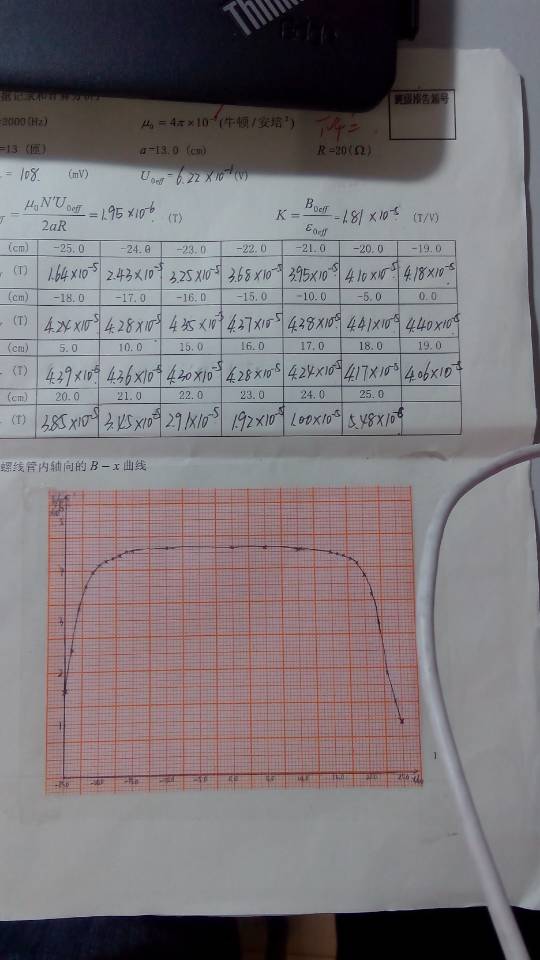 Think
据记录和计算分析
班级报告编号
=2000(Hz)
μ₀ = 4π×10⁻⁷(牛顿/安培²)
=13 (匝)
a=13.0 (cm)
R=20(Ω)
= 108. (mV)
U₀eff = 6.22×10⁻¹(V)
= μ₀N'U₀eff / 2aR = 1.95×10⁻⁶ (T)
K = B₀eff / ε₀eff = 1.81×10⁻⁵ (T/V)
(cm) -25.0 -24.0 -23.0 -22.0 -21.0 -20.0 -19.0
(T) 1.64×10⁻⁵ 2.43×10⁻⁵ 3.25×10⁻⁵ 3.68×10⁻⁵ 3.95×10⁻⁵ 4.10×10⁻⁵ 4.18×10⁻⁵
(cm) -18.0 -17.0 -16.0 -15.0 -10.0 -5.0 0.0
(T) 4.24×10⁻⁵ 4.28×10⁻⁵ 4.35×10⁻⁵ 4.37×10⁻⁵ 4.38×10⁻⁵ 4.41×10⁻⁵ 4.40×10⁻⁵
(cm) 5.0 10.0 15.0 16.0 17.0 18.0 19.0
(T) 4.39×10⁻⁵ 4.36×10⁻⁵ 4.30×10⁻⁵ 4.28×10⁻⁵ 4.24×10⁻⁵ 4.17×10⁻⁵ 4.06×10⁻⁵
(cm) 20.0 21.0 22.0 23.0 24.0 25.0
(T) 3.85×10⁻⁵ 3.45×10⁻⁵ 2.91×10⁻⁵ 1.92×10⁻⁵ 1.00×10⁻⁵ 5.48×10⁻⁶
螺线管内轴向的 B－x 曲线
5
4
3
2
1
-25.0 -5.0 0.0 5.0 10.0 15.0 20.0 25.0
1